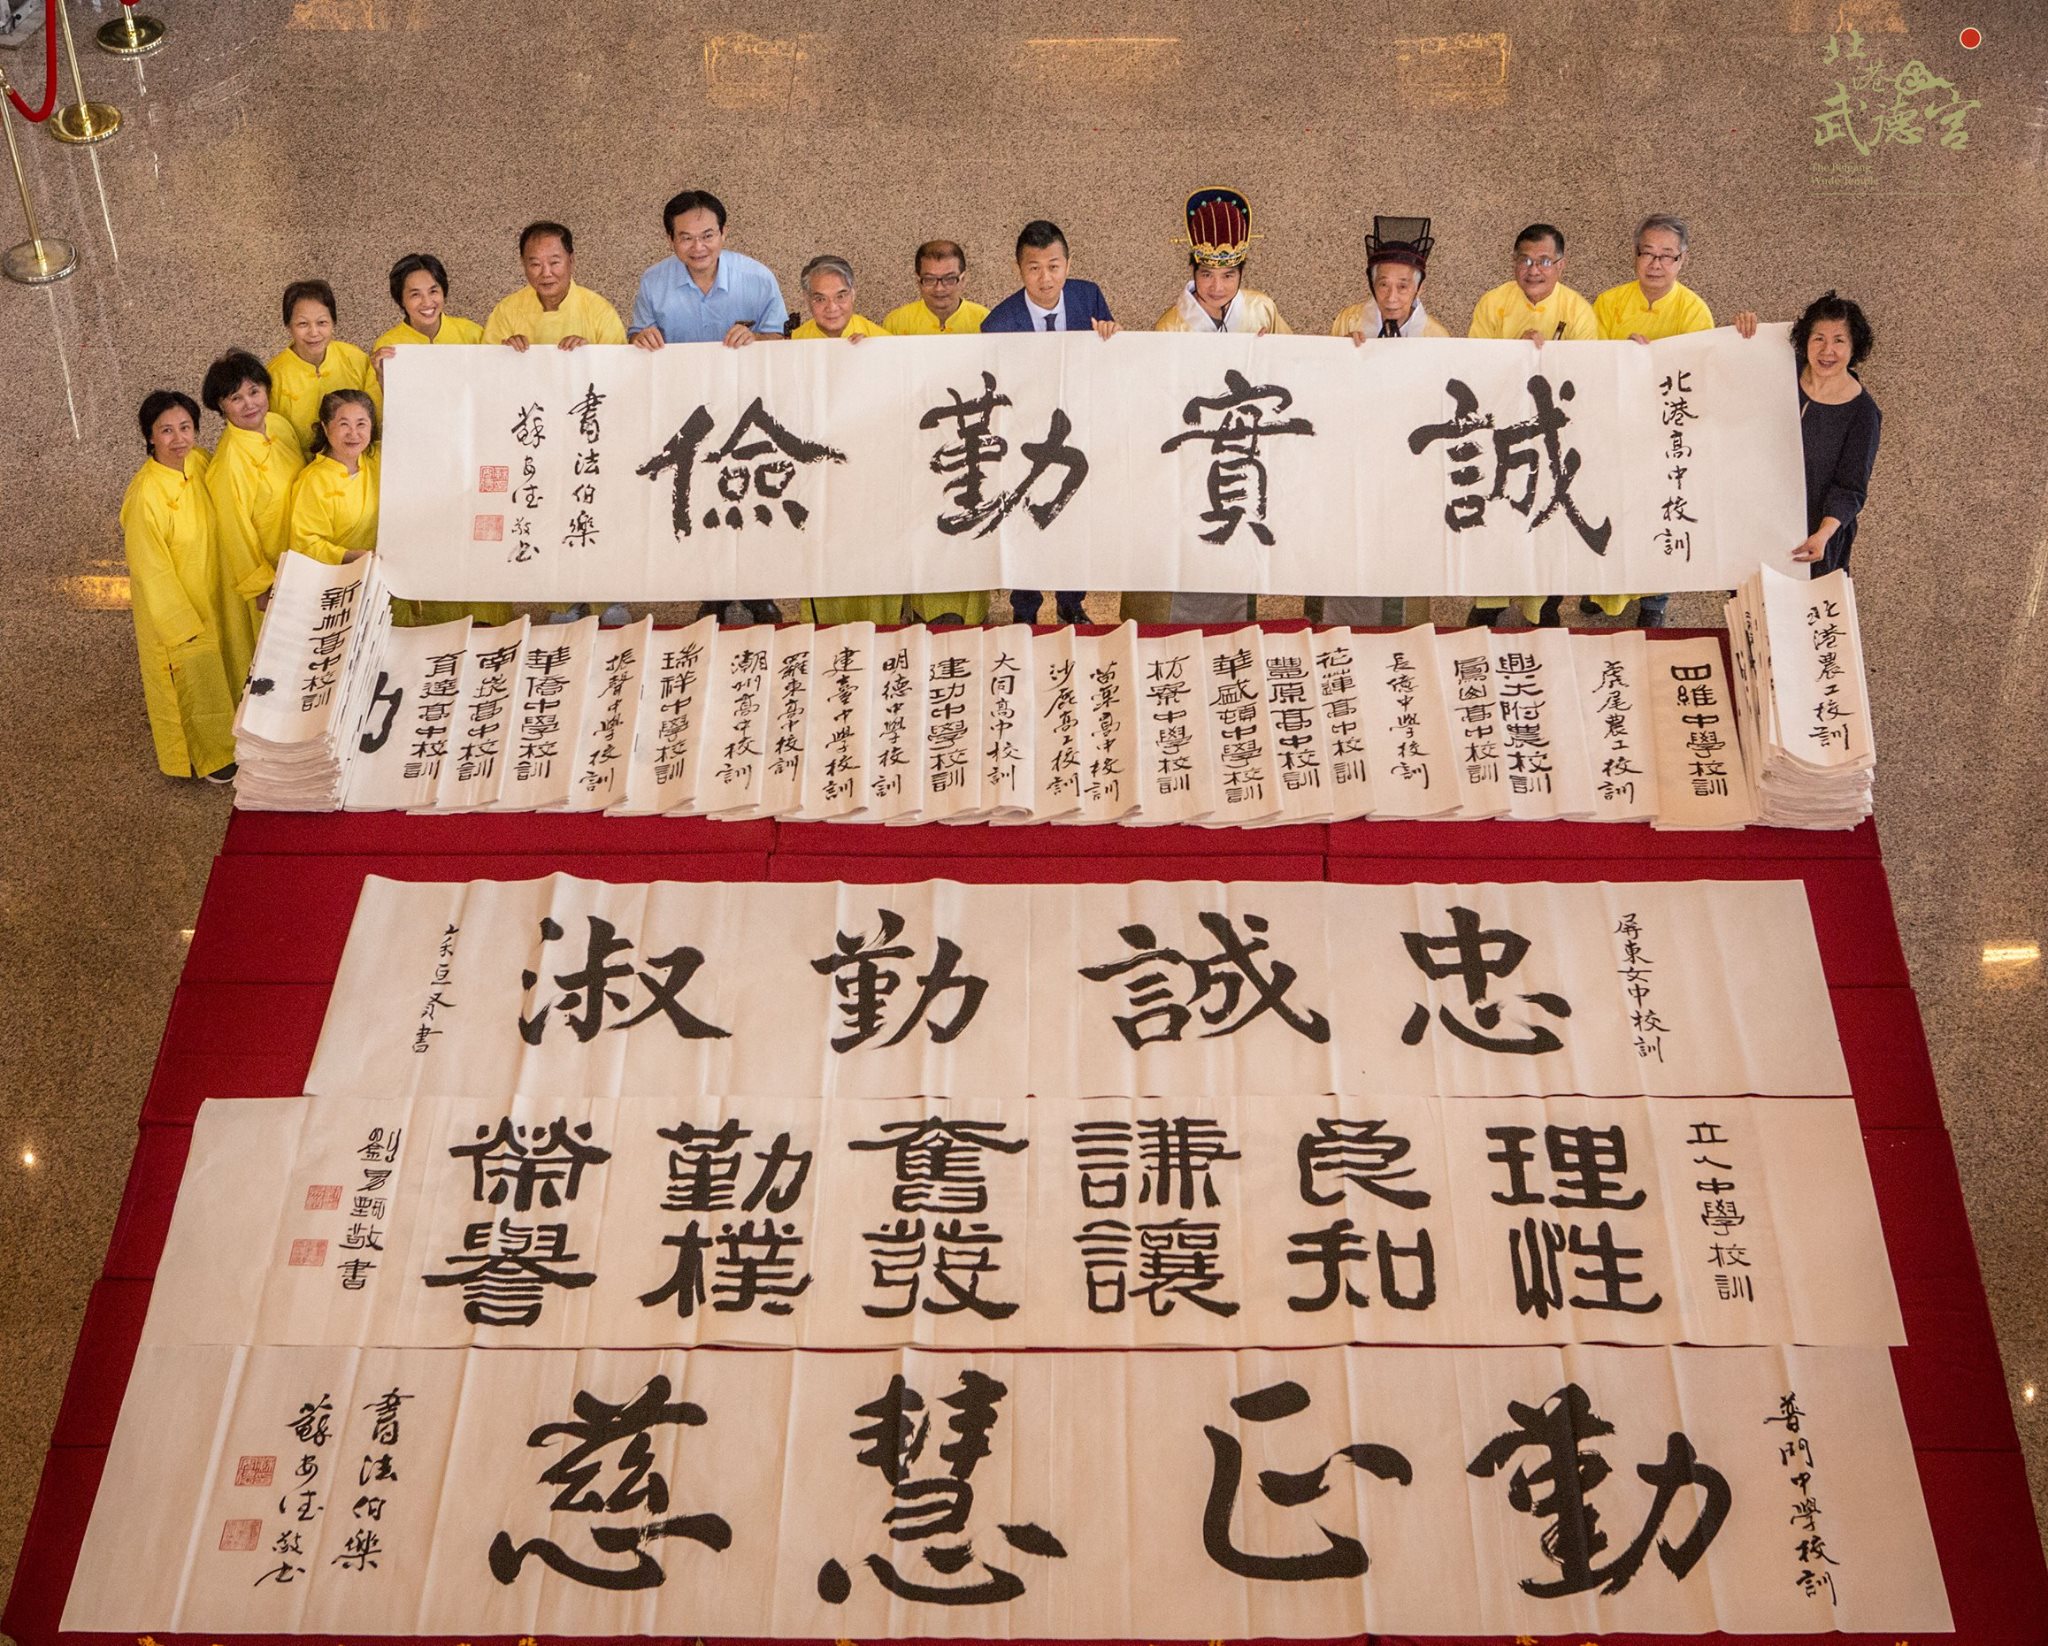 北港武德宮
The Beigang
Wude Temple
北港高中校訓
誠實勤儉
書法伯樂
蘇安德敬書
北港農工校訓
四維中學校訓
虎尾農工校訓
興大附農校訓
鳳崗高中校訓
長億中學校訓
花蓮高中校訓
豐原高中校訓
華盛頓中學校訓
枋寮中學校訓
苗栗高中校訓
沙鹿高工校訓
大同高中校訓
建功中學校訓
明德中學校訓
建臺中學校訓
羅東高中校訓
潮州高中校訓
瑞祥中學校訓
振聲中學校訓
華僑中學校訓
南崁高中校訓
育達高中校訓
新竹高中校訓
屏東女中校訓
忠誠勤淑
立人中學校訓
理性
良和
謙讓
奮發
勤樸
榮譽
劉昜甄敬書
普門中學校訓
勤正慧慈
書法伯樂
蘇安德敬書